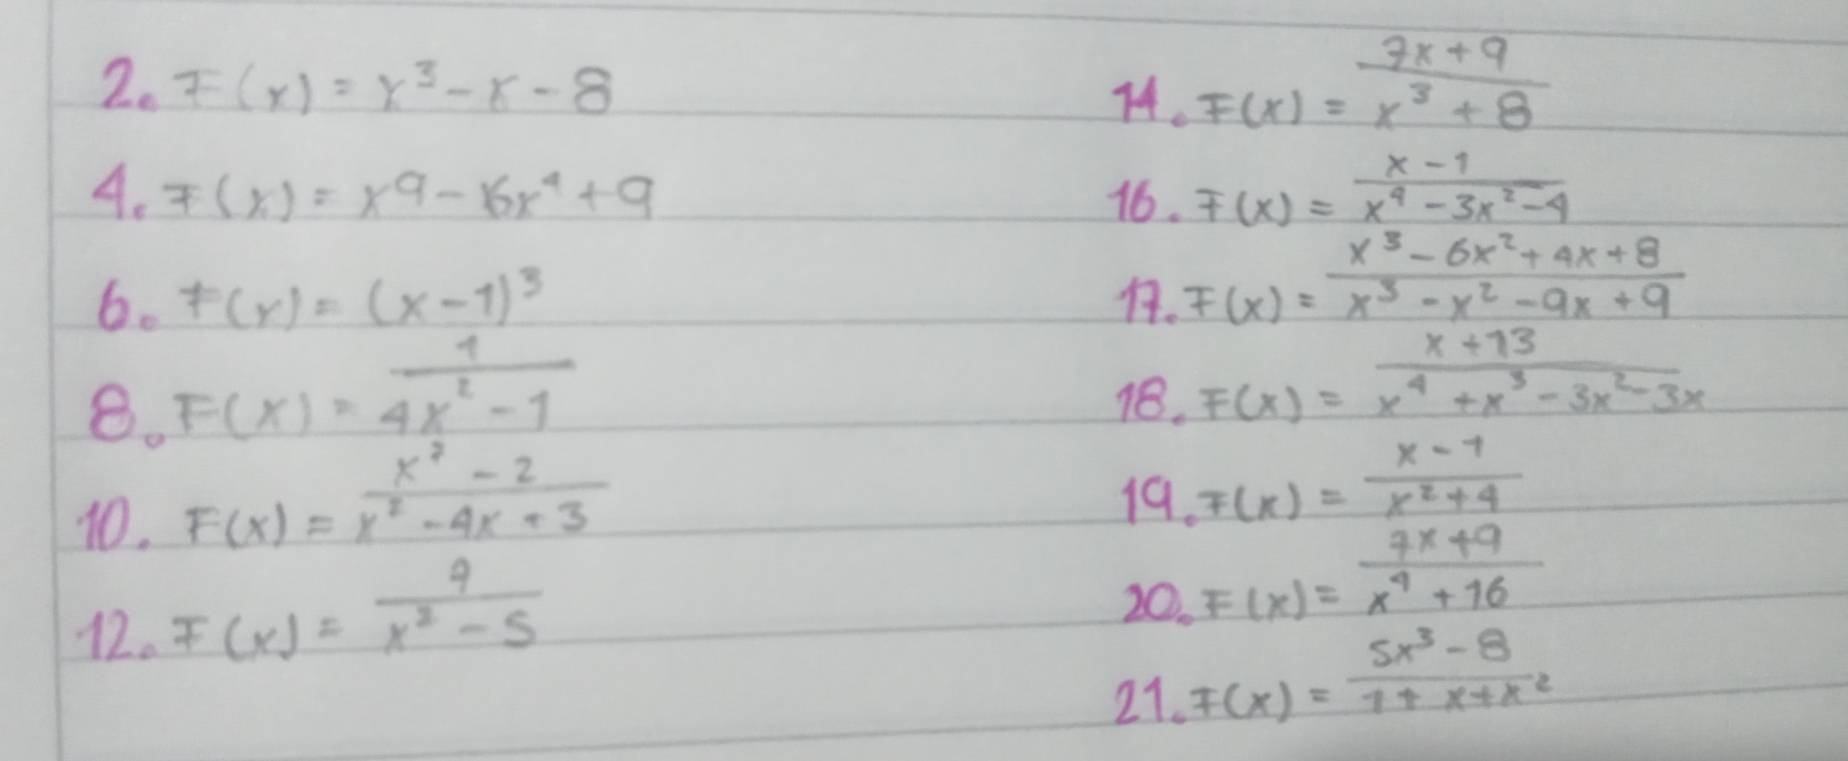 2. F(x) = x³ - x - 8
4. F(x) = x⁹ - 6x⁴ + 9
6. F(x) = (x - 1)³
8. F(x) = 1 / 4x² - 1
10. F(x) = x² - 2 / x² - 4x + 3
12. F(x) = 9 / x² - 5
14. F(x) = 7x + 9 / x³ + 8
16. F(x) = x - 1 / x⁴ - 3x² - 4
17. F(x) = x³ - 6x² + 4x + 8 / x³ - x² - 9x + 9
18. F(x) = x + 13 / x⁴ + x³ - 3x² - 3x
19. F(x) = x - 1 / x² + 4
20. F(x) = 7x + 9 / x⁴ + 16
21. F(x) = 5x³ - 8 / 1 + x + x²